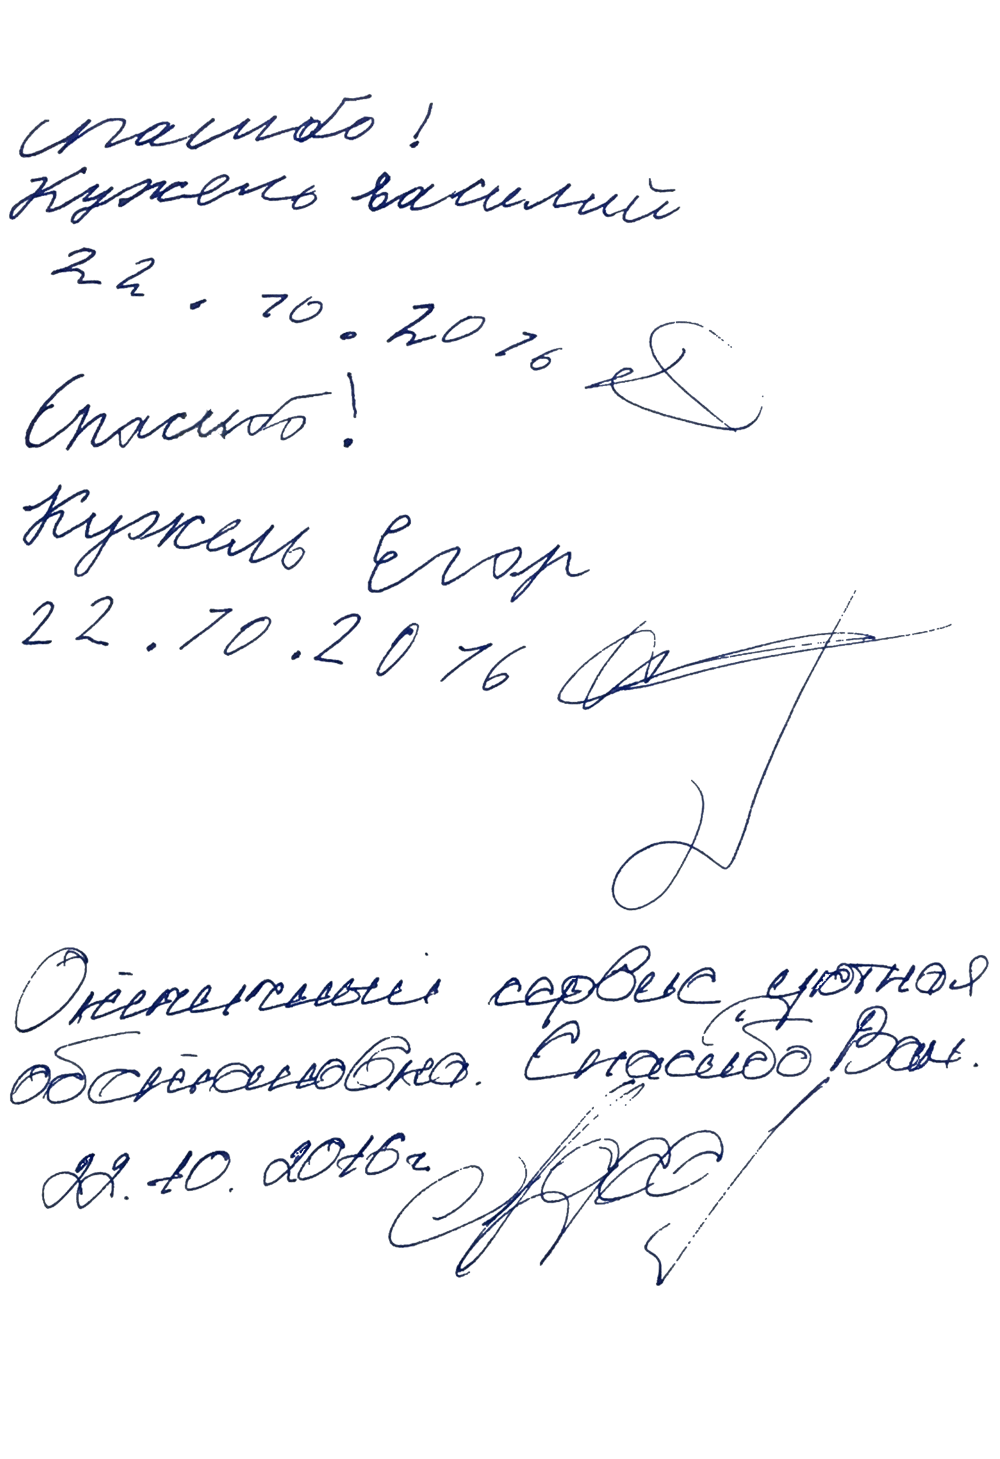 спасибо!
Кужель василий
22.10.2016
Спасибо!
Кужель Егор
22.10.2016
Отличный сервис уютная
обстановка. Спасибо Вам.
22.10.2016г